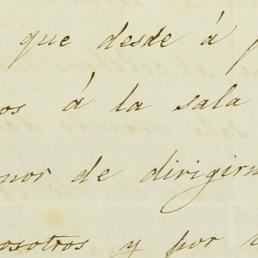 que desde á
os á la sala
nor de dirigirm
osotros y por